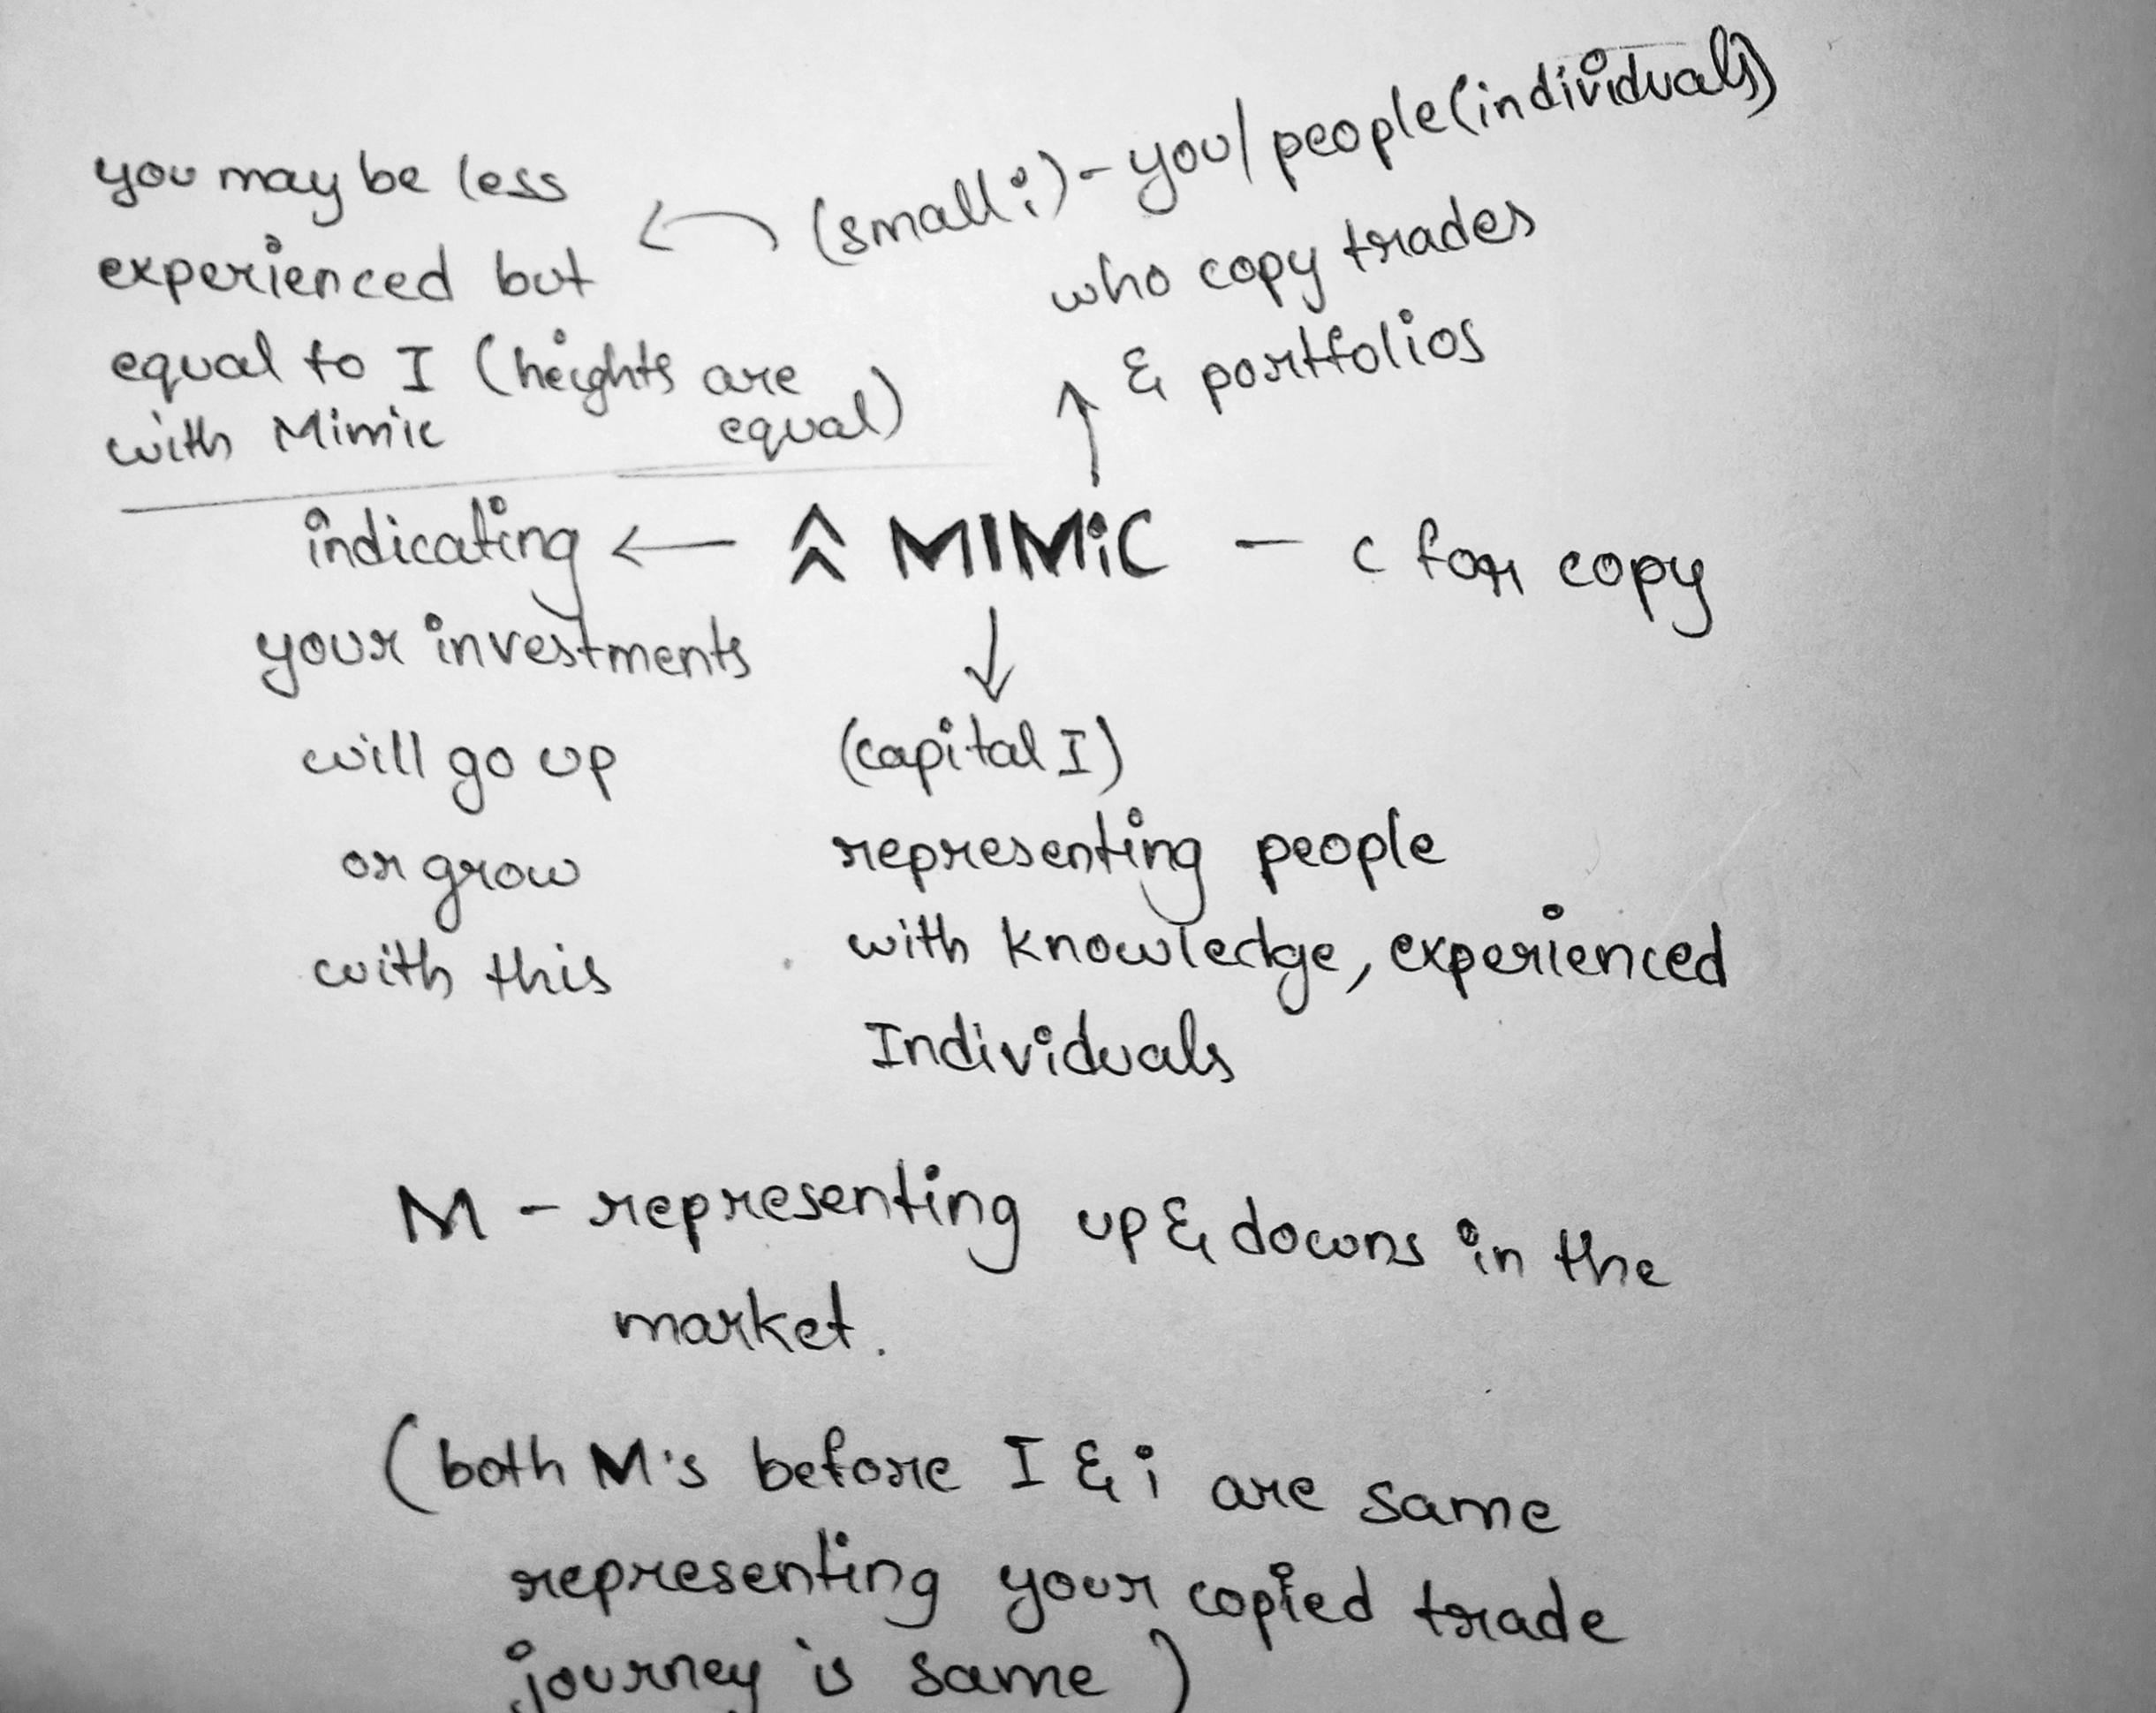 (small i) - you/people(individuals)
who copy trades
& portfolios
you may be less
experienced but
equal to I (heights are
equal)
with Mimic
MIMiC - c for copy
indicating
your investments
will go up
or grow
with this
(capital I)
representing people
with knowledge, experienced
Individuals
M - representing up & downs in the
market.
(both M's before I & i are same
representing your copied trade
journey is same)